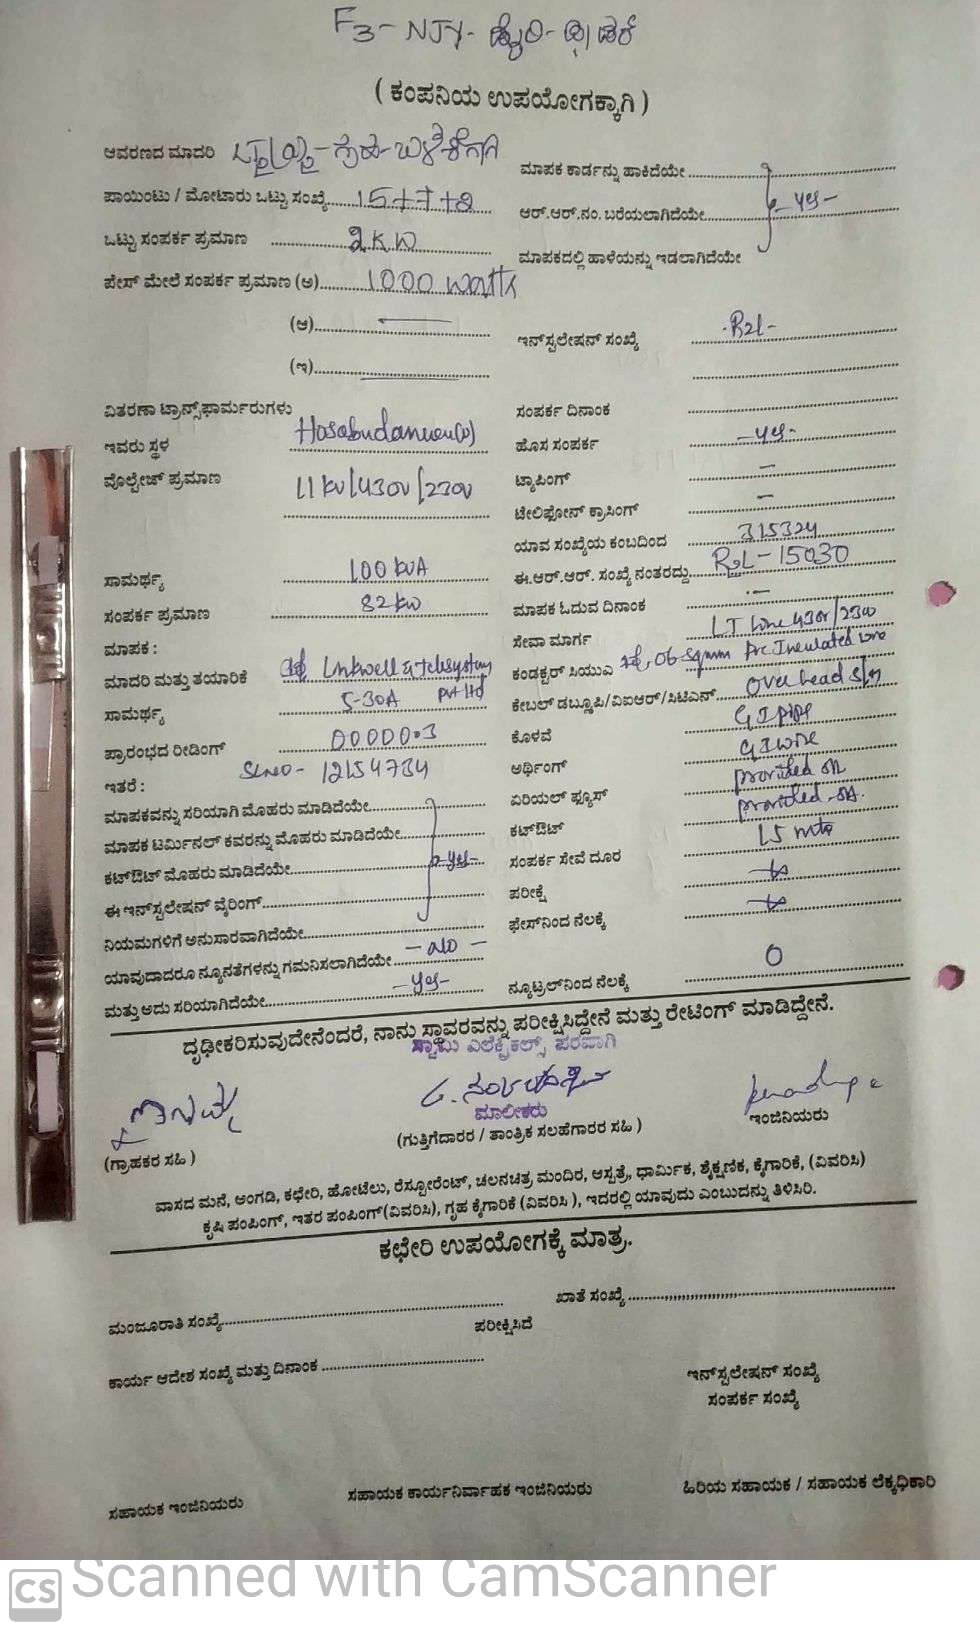 F3-NJY-
( ಕಂಪನಿಯ ಉಪಯೋಗಕ್ಕಾಗಿ )
ಆವರಣದ ಮಾದರಿ
ಮಾಪಕ ಕಾರ್ಡನ್ನು ಹಾಕಿದೆಯೇ
ಪಾಯಿಂಟು / ಮೋಟಾರು ಒಟ್ಟು ಸಂಖ್ಯೆ 15+7+2
ಆರ್.ಆರ್.ನಂ. ಬರೆಯಲಾಗಿದೆಯೇ -yes-
ಒಟ್ಟು ಸಂಪರ್ಕ ಪ್ರಮಾಣ 2KW
ಮಾಪಕದಲ್ಲಿ ಹಾಳೆಯನ್ನು ಇಡಲಾಗಿದೆಯೇ
ಪೇಸ್ ಮೇಲೆ ಸಂಪರ್ಕ ಪ್ರಮಾಣ (ಅ) 1000 watts
(ಆ) —
ಇನ್‌ಸ್ಟಲೇಷನ್ ಸಂಖ್ಯೆ
(ಇ) —
ವಿತರಣಾ ಟ್ರಾನ್ಸ್‌ಫಾರ್ಮರುಗಳು
ಸಂಪರ್ಕ ದಿನಾಂಕ
ಇವರು ಸ್ಥಳ
ಹೊಸ ಸಂಪರ್ಕ -yes-
ವೊಲ್ಟೇಜ್ ಪ್ರಮಾಣ 11kv/430v/230v
ಟ್ಯಾಪಿಂಗ್ —
ಟೇಲಿಫೋನ್ ಕ್ರಾಸಿಂಗ್ —
ಯಾವ ಸಂಖ್ಯೆಯ ಕಂಬದಿಂದ 315324
ಸಾಮರ್ಥ್ಯ 100 kVA
ಈ.ಆರ್.ಆರ್. ಸಂಖ್ಯೆ ನಂತರದ್ದು
ಸಂಪರ್ಕ ಪ್ರಮಾಣ 82kw
ಮಾಪಕ ಓದುವ ದಿನಾಂಕ
ಮಾಪಕ :
ಸೇವಾ ಮಾರ್ಗ LT line 430v/230v
ಮಾದರಿ ಮತ್ತು ತಯಾರಿಕೆ Linkwell & telesystems pvt ltd
ಕಂಡಕ್ಟರ್ ಸಿಯುಎ 06 sqmm Pvc Insulated wire
ಸಾಮರ್ಥ್ಯ 5-30A
ಕೇಬಲ್ ಡಬ್ಲೂಪಿ/ವಿಐಆರ್/ಸಿಟಿಎಸ್ Over head
ಪ್ರಾರಂಭದ ರೀಡಿಂಗ್ 00000.3
ಕೊಳವೆ GI pipe
ಇತರೆ : SLNO- 12154734
ಅರ್ಥಿಂಗ್ GI wire
ಮಾಪಕವನ್ನು ಸರಿಯಾಗಿ ಮೊಹರು ಮಾಡಿದೆಯೇ
ಏರಿಯಲ್ ಫ್ಯೂಸ್ provided
ಮಾಪಕ ಟರ್ಮಿನಲ್ ಕವರನ್ನು ಮೊಹರು ಮಾಡಿದೆಯೇ
ಕಟ್‌ಔಟ್ provided
ಕಟ್‌ಔಟ್ ಮೊಹರು ಮಾಡಿದೆಯೇ -yes-
ಸಂಪರ್ಕ ಸೇವೆ ದೂರ 15 mts
ಈ ಇನ್‌ಸ್ಟಲೇಷನ್ ವೈರಿಂಗ್
ಪರೀಕ್ಷೆ
ನಿಯಮಗಳಿಗೆ ಅನುಸಾರವಾಗಿದೆಯೇ
ಫೇಸ್‌ನಿಂದ ನೆಲಕ್ಕೆ
ಯಾವುದಾದರೂ ನ್ಯೂನತೆಗಳನ್ನು ಗಮನಿಸಲಾಗಿದೆಯೇ - NO -
ಮತ್ತು ಅದು ಸರಿಯಾಗಿದೆಯೇ -yes-
ನ್ಯೂಟ್ರಲ್‌ನಿಂದ ನೆಲಕ್ಕೆ 0
ದೃಢೀಕರಿಸುವುದೇನೆಂದರೆ, ನಾನು ಸ್ಥಾವರವನ್ನು ಪರೀಕ್ಷಿಸಿದ್ದೇನೆ ಮತ್ತು ರೇಟಿಂಗ್ ಮಾಡಿದ್ದೇನೆ.
ಸ್ವಾಮಿ ಎಲೆಕ್ಟ್ರಿಕಲ್ಸ್, ಪರವಾಗಿ
ಮಾಲೀಕರು
(ಗ್ರಾಹಕರ ಸಹಿ )
(ಗುತ್ತಿಗೆದಾರರ / ತಾಂತ್ರಿಕ ಸಲಹೆಗಾರರ ಸಹಿ )
ಇಂಜಿನಿಯರು
ವಾಸದ ಮನೆ, ಅಂಗಡಿ, ಕಛೇರಿ, ಹೋಟೆಲು, ರೆಸ್ಟೋರೆಂಟ್, ಚಲನಚಿತ್ರ ಮಂದಿರ, ಆಸ್ಪತ್ರೆ, ಧಾರ್ಮಿಕ, ಶೈಕ್ಷಣಿಕ, ಕೈಗಾರಿಕೆ, (ವಿವರಿಸಿ)
ಕೃಷಿ ಪಂಪಿಂಗ್, ಇತರ ಪಂಪಿಂಗ್(ವಿವರಿಸಿ), ಗೃಹ ಕೈಗಾರಿಕೆ (ವಿವರಿಸಿ ), ಇದರಲ್ಲಿ ಯಾವುದು ಎಂಬುದನ್ನು ತಿಳಿಸಿರಿ.
ಕಛೇರಿ ಉಪಯೋಗಕ್ಕೆ ಮಾತ್ರ.
ಮಂಜೂರಾತಿ ಸಂಖ್ಯೆ
ಖಾತೆ ಸಂಖ್ಯೆ
ಪರೀಕ್ಷಿಸಿದೆ
ಕಾರ್ಯ ಆದೇಶ ಸಂಖ್ಯೆ ಮತ್ತು ದಿನಾಂಕ
ಇನ್‌ಸ್ಟಲೇಷನ್ ಸಂಖ್ಯೆ
ಸಂಪರ್ಕ ಸಂಖ್ಯೆ
ಸಹಾಯಕ ಇಂಜಿನಿಯರು
ಸಹಾಯಕ ಕಾರ್ಯನಿರ್ವಾಹಕ ಇಂಜಿನಿಯರು
ಹಿರಿಯ ಸಹಾಯಕ / ಸಹಾಯಕ ಲೆಕ್ಕಧಿಕಾರಿ
CS Scanned with CamScanner